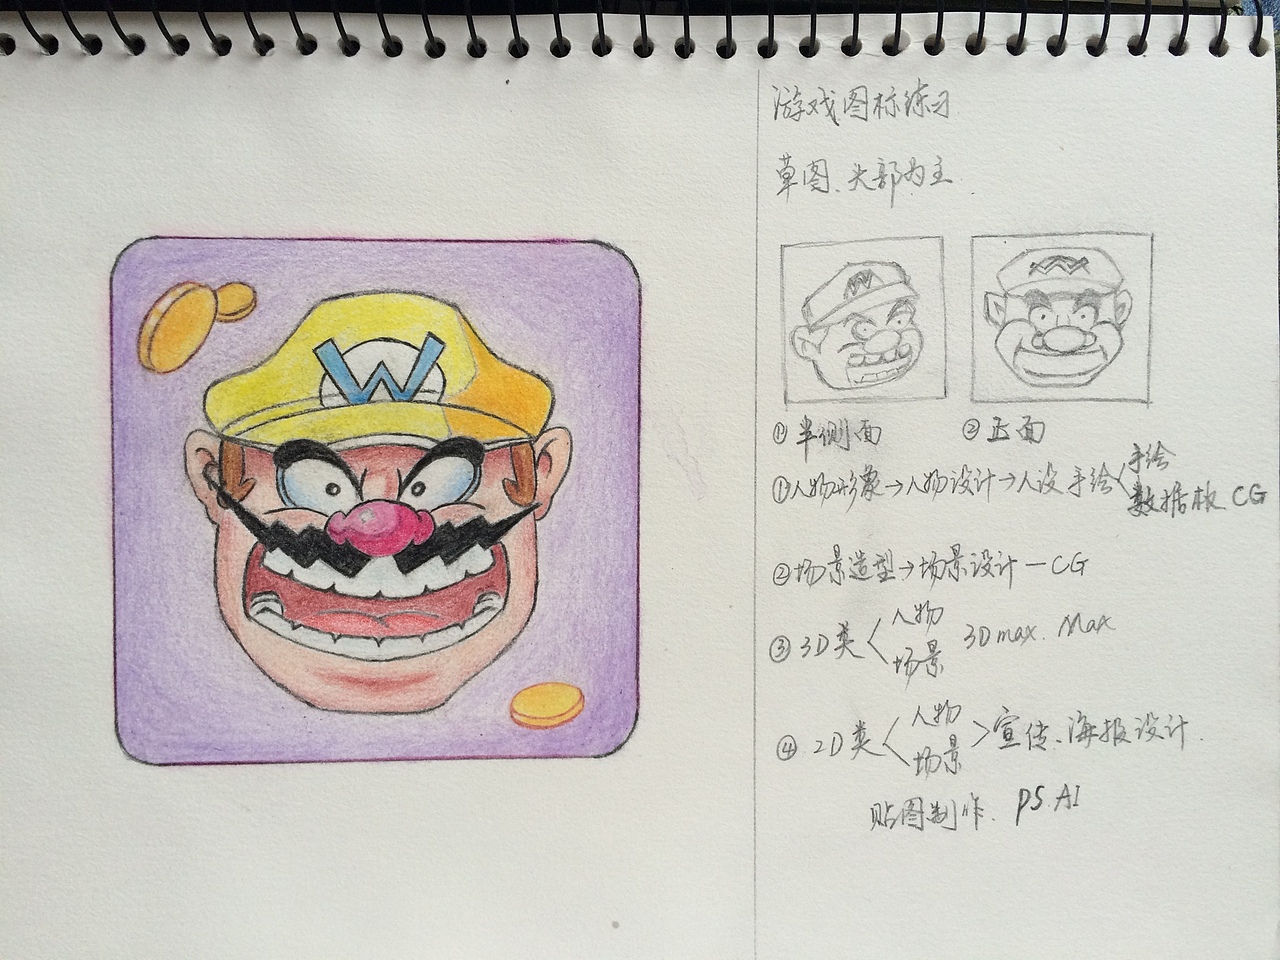 游戏图标练习
草图、头部为主
W
W
W
①半侧面
②正面
①人物形象→人物设计→人设手绘<手绘
数据板 CG
②场景造型→场景设计—CG
③3D类<人物
场景
3Dmax. Max
④2D类<人物
场景
>宣传、海报设计.
贴图制作. PS AI